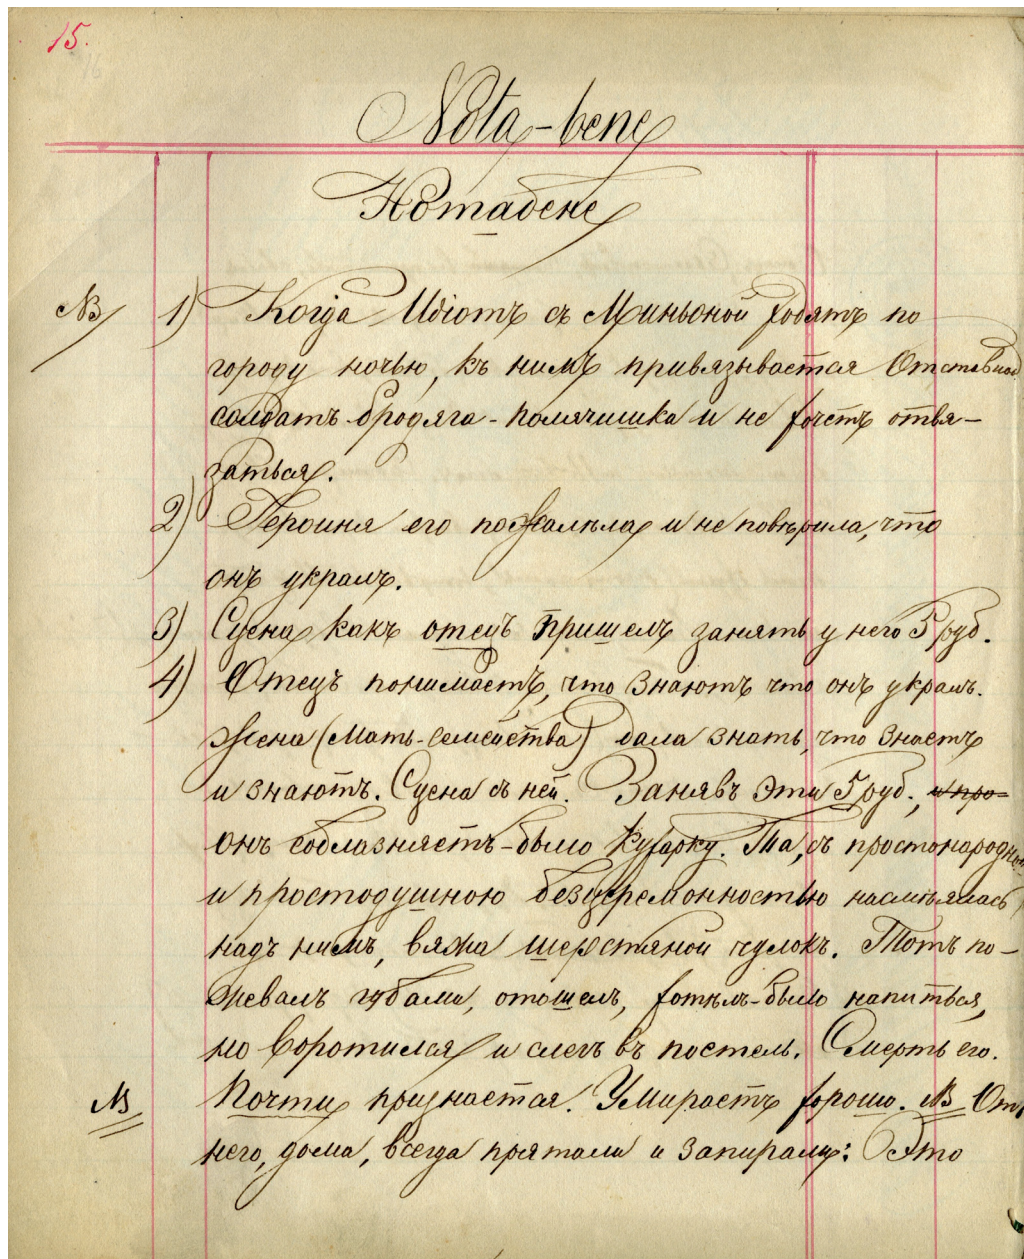 15.
Nota-bene
Нотабене
NB 1) Когда Идіотъ съ Миньоной ходятъ по
городу ночью, къ нимъ привязывается Отставной
солдатъ бродяга-полячишка и не хочетъ отвя-
заться.
2) Героиня его пожалѣла и не повѣрила, что
онъ укралъ.
3) Сцена какъ отецъ пришелъ занять у него 5 руб.
4) Отецъ понимаетъ, что знаютъ что онъ укралъ.
Жена (Мать-семейства) дала знать, что знаетъ
и знаютъ. Сцена съ ней. Занявъ эти 5 руб., и про-
онъ соблазняетъ-было Кухарку. Та, съ простонародною
и простодушною безцеремонностью насмѣялась
надъ нимъ, вяжа шерстяной чулокъ. Тотъ по-
жевалъ губами, отошелъ, хотѣлъ-было напиться,
но воротился и слегъ въ постель. Смерть его.
NB Почти признается. Умираетъ хорошо. NB Отъ
него, дома, всегда прятали и запирали: Это